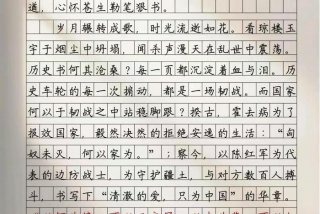 道，心怀苍生勒笔狠书。
岁月辗转成歌，时光流逝如花。看琼楼玉
宇于烟尘中坍塌，闻杀声漫天在乱世中震荡。
历史书何其沧桑？每一页都沉淀着血与泪。历
史车轮的每一次捕动，都是一场韧战。而国家
何以于韧战之中站稳脚跟？揆古，霍去病为了
报效国家，毅然决然的拒绝安逸的生活：“匈
奴未灭，何以家为。”；察今，以陈红军为代
表的边防战士，为守护疆土，与对方数百人搏
斗，书写下“清澈的爱，只为中国”的华章。